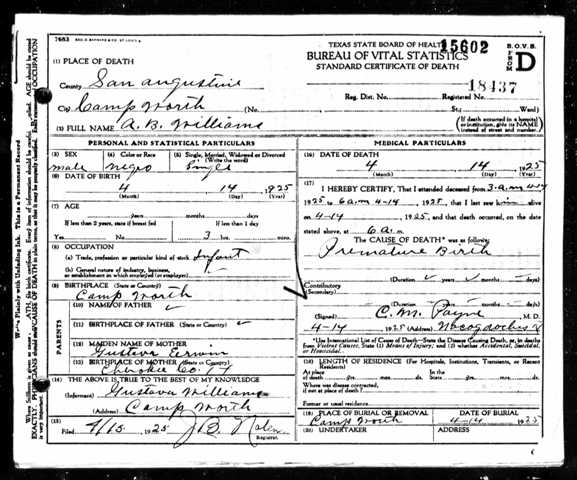 7683
TEXAS STATE BOARD OF HEALTH 15602
BUREAU OF VITAL STATISTICS
STANDARD CERTIFICATE OF DEATH
B.O.V.S.
FROM D
(1) PLACE OF DEATH
County San Augustine
18437
Reg. Dist. No. Registered No.
City Camp Worth (No. St.; Ward)
(If death occurred in a hospital or institution, give its NAME instead of street and number)
(2) FULL NAME A.B. Williams
PERSONAL AND STATISTICAL PARTICULARS
(3) SEX
male
(4) Color or Race
negro
(5) Single, Married, Widowed or Divorced
(Write the word)
Single
(6) DATE OF BIRTH
4 14 1925
(Month) (Day) (Year)
(7) AGE
years months days
If less than 2 years, state if breast fed If less than 1 day
Yes No 3 hrs. mins.
(8) OCCUPATION
(a) Trade, profession or particular kind of work Infant
(b) General nature of industry, business, or establishment in which employed (or employer)
(9) BIRTHPLACE (State or County)
Camp Worth
PARENTS
(10) NAME OF FATHER
(11) BIRTHPLACE OF FATHER (State or Country)
(12) MAIDEN NAME OF MOTHER
Gustava
(13) BIRTHPLACE OF MOTHER (State or Country)
Cherokee Co.
(14) THE ABOVE IS TRUE TO THE BEST OF MY KNOWLEDGE
(Informant) Gustava Williams
(Address) Camp Worth
(15)
Filed 4/15 1925
Registrar.
MEDICAL PARTICULARS
(16) DATE OF DEATH
4 14 1925
(Month) (Day) (Year)
(17)
I HEREBY CERTIFY, That I attended deceased from 3 a.m 4-14
1925 to 6 a.m 4-14, 1925, that I last saw him alive
on 4-14, 1925, and that death occurred, on the date
stated above, at 6 a.m.
The CAUSE OF DEATH* was as follows:
Premature Birth
(Duration years months days)
Contributory
(Secondary)
(Duration years months days)
(Signed) C. M. Payne, M. D.
4-14 1925 (Address) Nacogdoches
*Use International List of Causes of Death—State the Disease Causing Death, or, in deaths from Violent Causes, State (1) Means of Injury; and (2) whether Accidental, Suicidal, or Homicidal.
(18) LENGTH OF RESIDENCE (For Hospitals, Institutions, Transients, or Recent Residents)
At place of death yrs. mos. days. In the State yrs. mos. days
Where was disease contracted, if not at place of death?
Former or usual residence
(19) PLACE OF BURIAL OR REMOVAL
Camp Worth
DATE OF BURIAL
4-14 1925
(20) UNDERTAKER ADDRESS